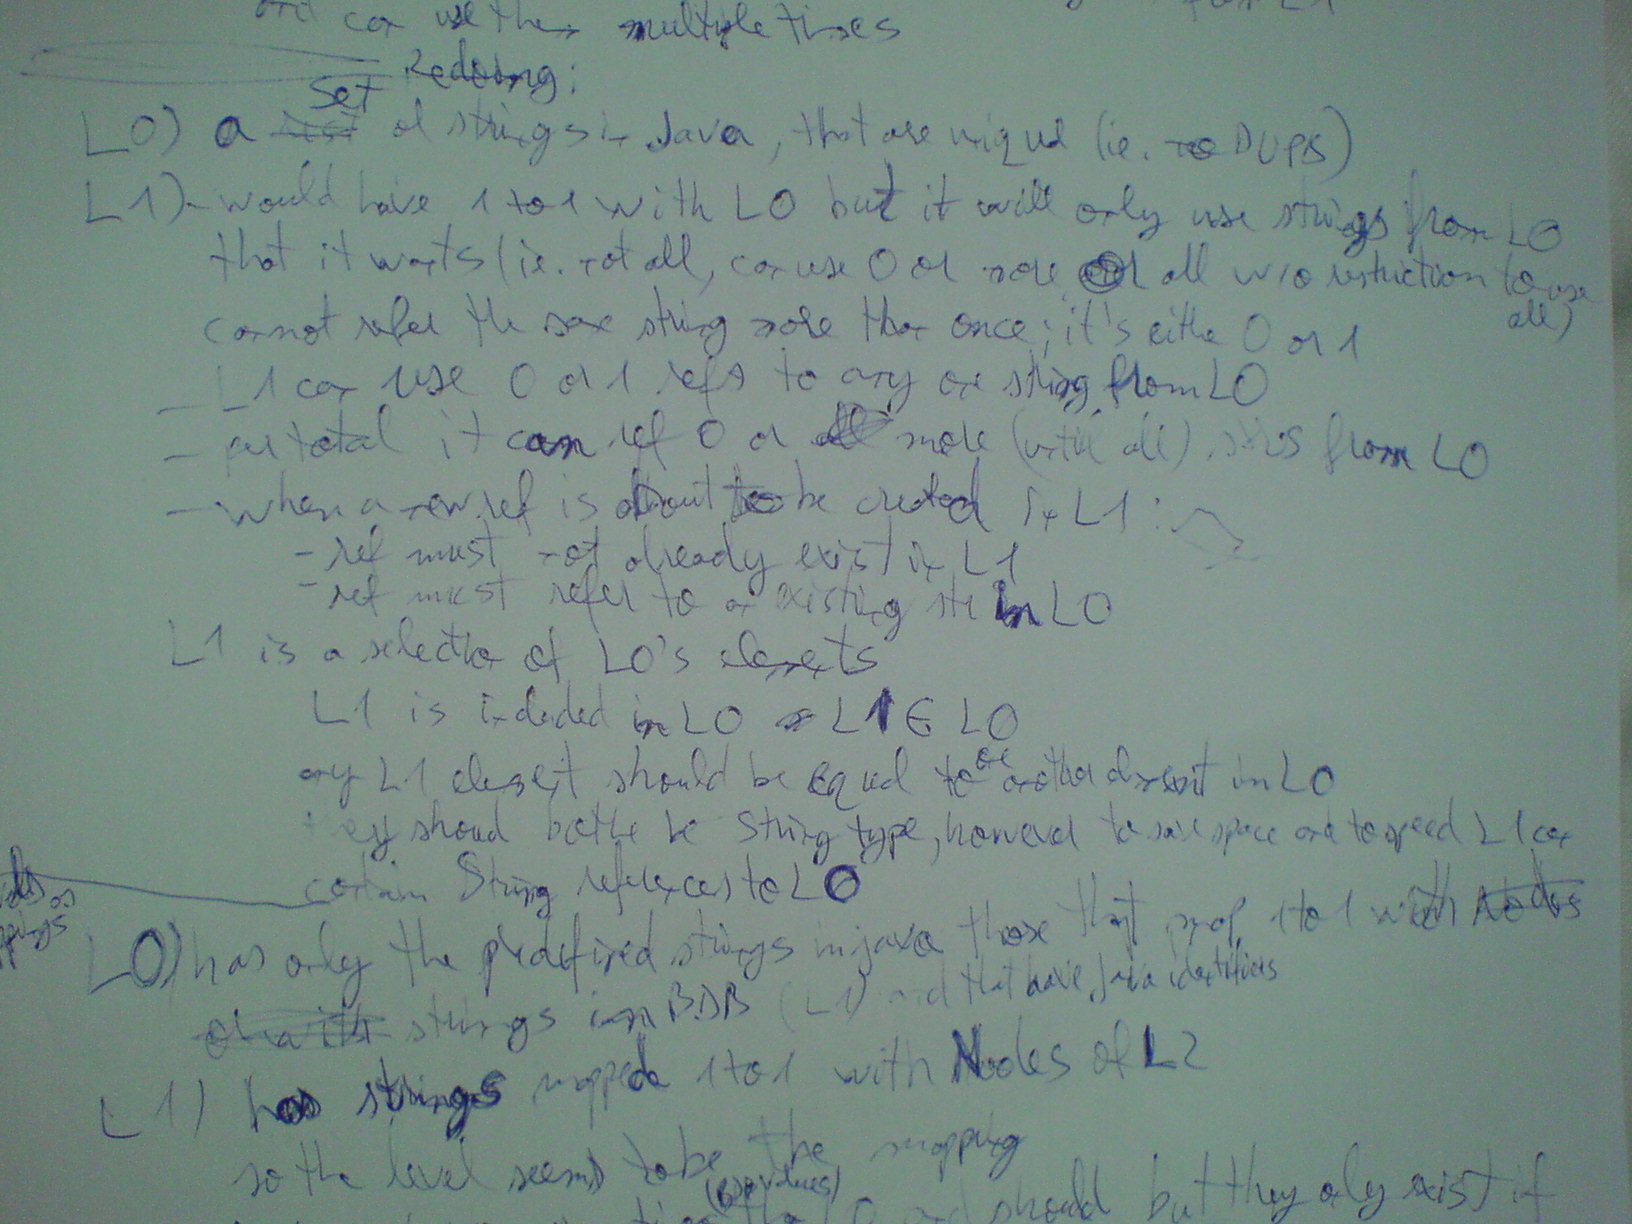 and can use them multiple times
from L1
Redoing:
Set
L0) a list of strings in Java, that are unique (ie. no DUPS)
L1) - would have 1 to 1 with L0 but it will only use strings from L0
that it wants (ie. not all, can use 0 or more or all w/o restriction to use
all)
cannot refer the same string more than once; it's either 0 or 1
- L1 can use 0 or 1 refs to any one string from L0
- per total it can ref 0 or all more (until all) strs from L0
- when a new ref is about to be created in L1:
- ref must not already exist in L1
- ref must refer to an existing str in L0
L1 is a selection of L0's elements
L1 is included in L0 L1 ∈ L0
any L1 element should be equal to one another element in L0
they should bothe be String type, however to save space and to speed L1 can
contain String references to L0
L0) has only the predefined strings in java those that map 1 to 1 with Nodes
strings in BDB (L1) and that have Java identifiers
L1) has strings mapped 1 to 1 with Nodes of L2
so the level seems to be the mapping
L0 and should but they only exist if